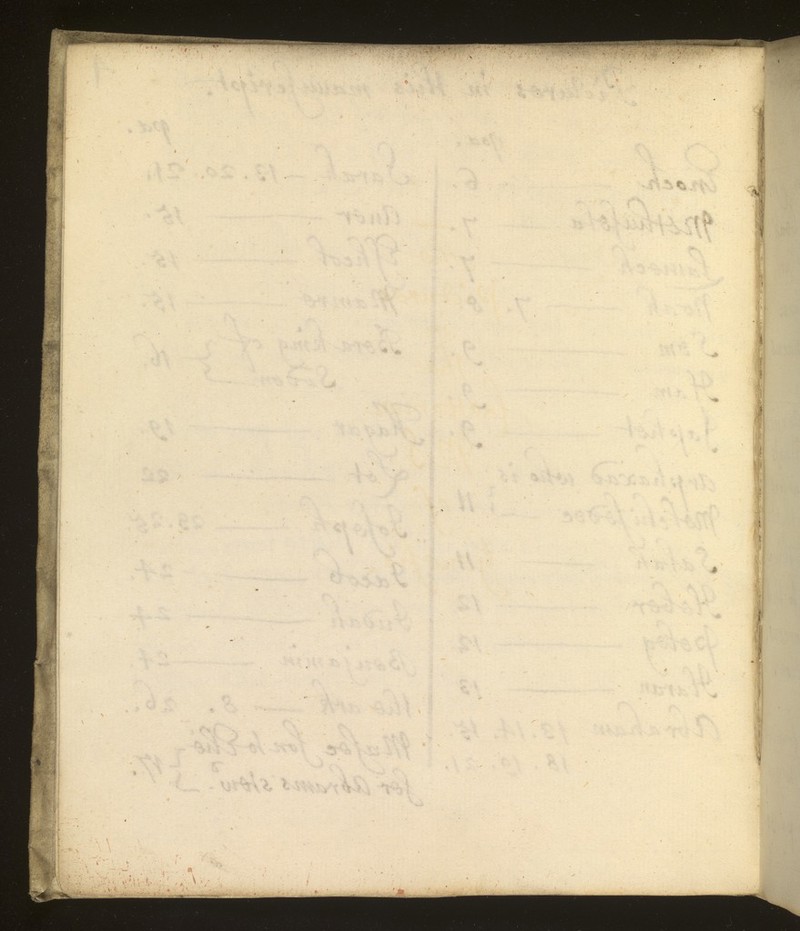 Pictures in this manuscript.
pa.
Enoch — 6.
Methusela — 7.
Lamech — 7.
Noah — 7. 8.
Sem — 9.
Ham — 9.
Japhet — 9.
Arphaxad who is
Melchisedec — 11
Salah — 11
Heber — 12
peleg — 12
Haran — 13
Abraham 13. 14. 15.
18. 19. 21.
pa.
Sarah — 13. 20. 21.
Aner — 15.
Eshcol — 15.
Mamre — 15.
Bera king of
Sodom — 16.
Hagar — 19.
Lot — 22
Joseph — 23. 25
Jacob — 24.
Judah — 24
Benjamin — 24
the ark — 8. 26.
son to
for Abrams